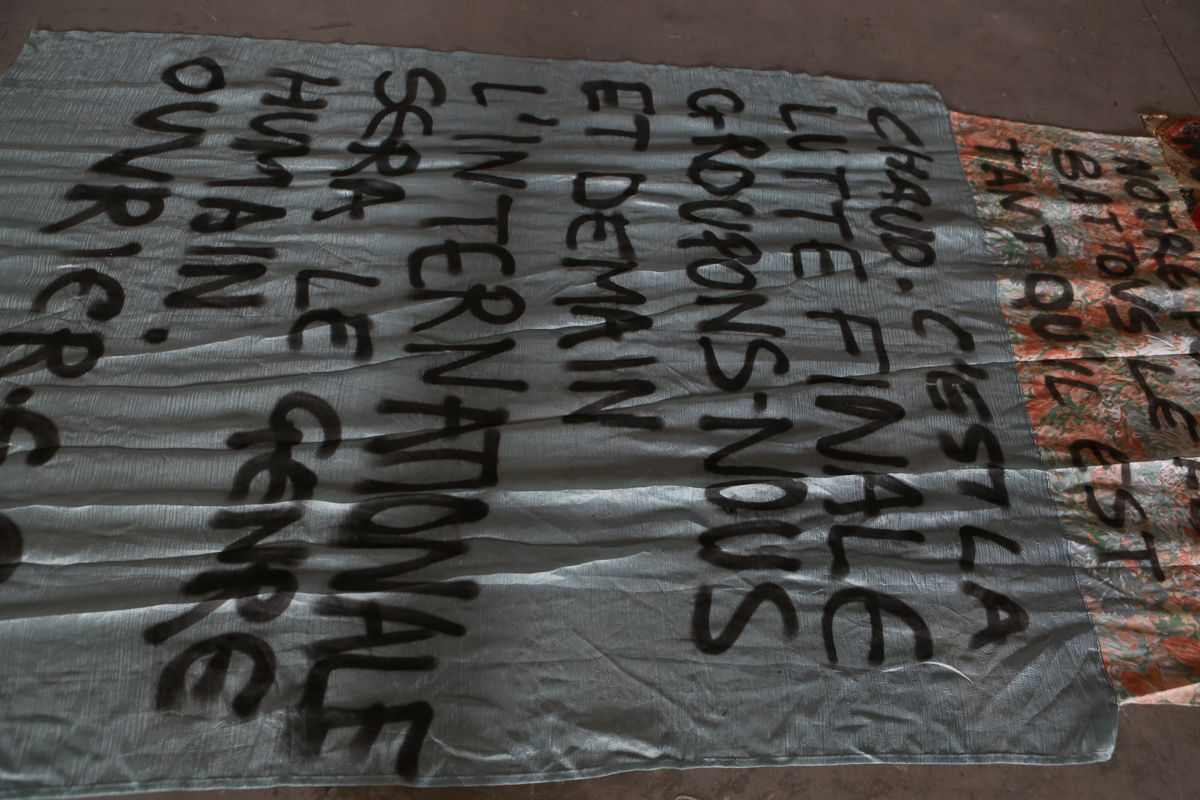 NOTRE
BATTOUS LE
TANT QU'IL EST
CHAUD. C'EST LA
LUTTE FINALE
GROUPONS-NOUS
ET DEMAIN
L'INTERNATIONALE
SERA LE GENRE
HUMAIN.
OUVRIER.S